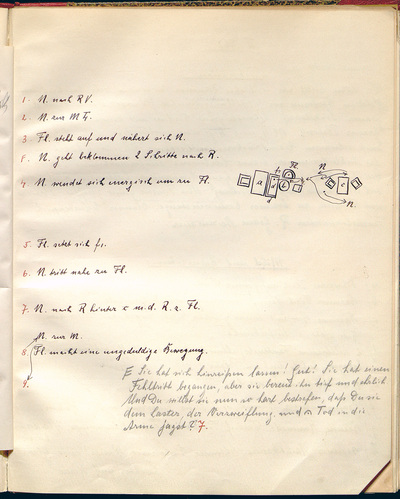 1. N. nach R V.
2. N. zur M Ti.
3. Fl. steht auf und nähert sich N.
8. N. geht beklommen 2 Schritte nach R.
4. N wendet sich energisch um zu Fl.
Fl.
f1.
N
a
d
b
c
g
N.
5. Fl. setzt sich f1.
6. N. tritt nahe zu Fl.
7. N. nach R hinter c m. d. R. z. Fl.
N. zur M.
8. Fl. macht eine ungeduldige Bewegung.
9.
E Sie hat sich hinreißen lassen! Gut! Sie hat einen
Fehltritt begangen, aber sie bereut ihn tief und ehrlich
Und Du willst sie nun so hart bestrafen, daß Du sie
dem Laster, der Verzweiflung und dem Tod in die
Arme jagst? 7.